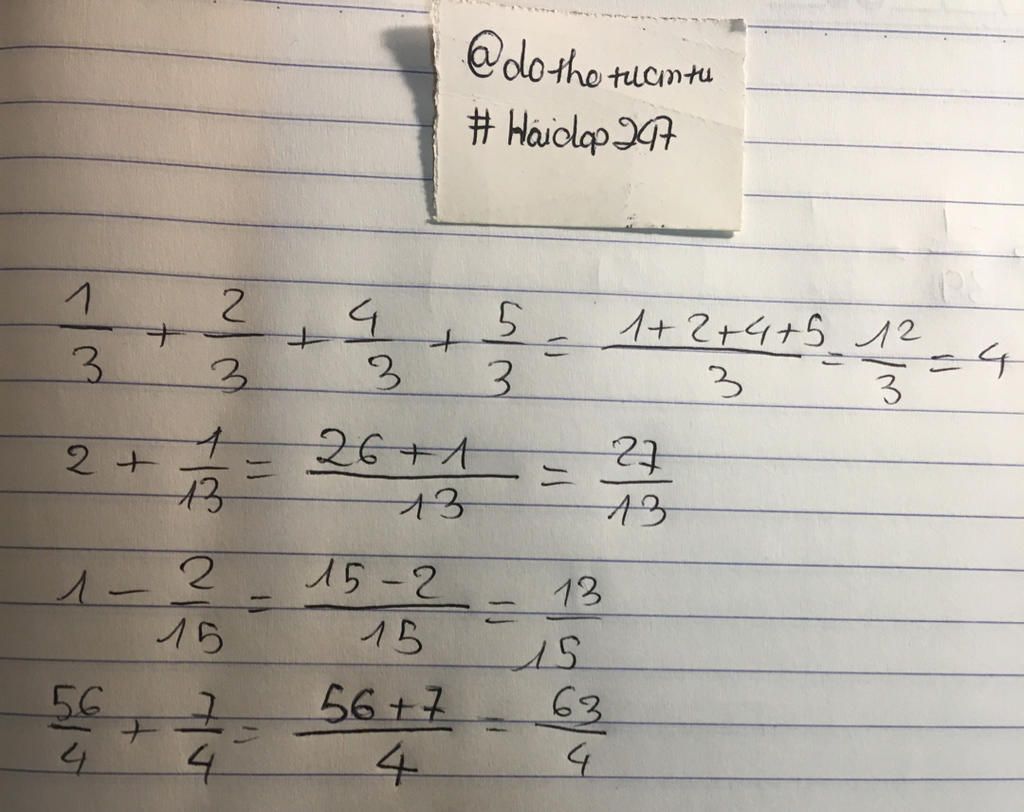 @dothetuantu
#Hoidap247
1/3 + 2/3 + 4/3 + 5/3 = (1+2+4+5)/3 = 12/3 = 4
2 + 1/13 = (26+1)/13 = 27/13
1 - 2/15 = (15-2)/15 = 13/15
56/4 + 7/4 = (56+7)/4 = 63/4